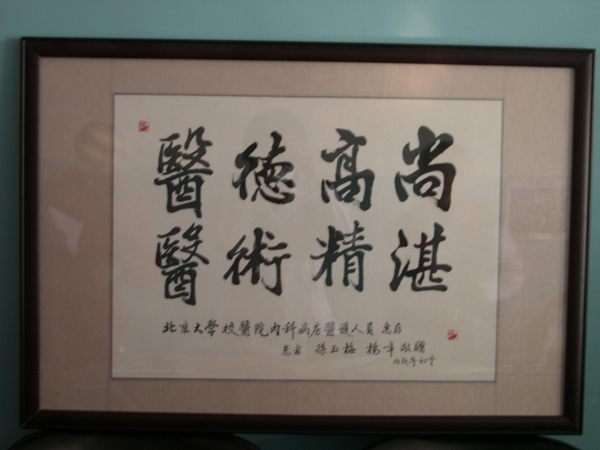 醫德高尚
醫術精湛
北京大學校醫院内科病房醫護人員 惠存
患者 孫玉梅 楊辛敬贈
丙戌年初